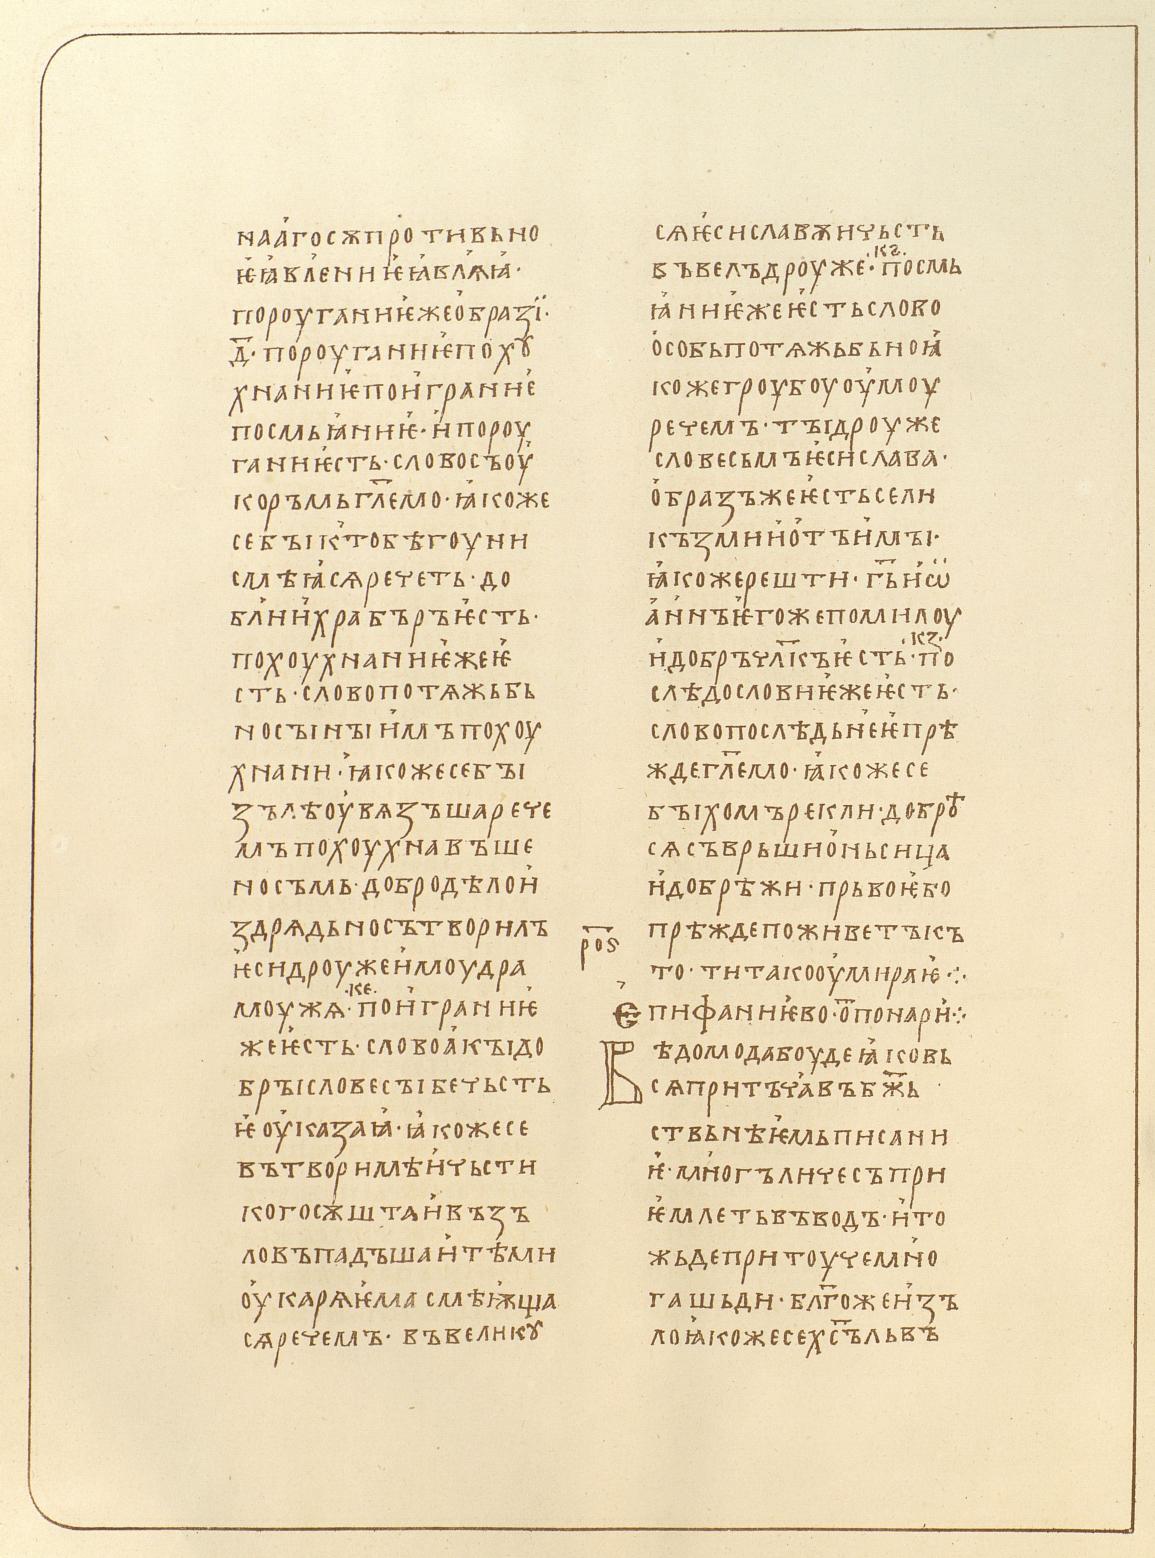 наагосѫпротивьно
ѥꙗвлениѥꙗвлѩꙗ·
пороуганиѥжеобразї·
д҃·пороуганиѥпохꙋ
хнаниѥпоиграние
посмьꙗниѥ·ипороу
ганиѥсть·словосъоу
коръмьгл҃емо·ꙗкоже
себъіктобѣгоуни
смѣꙗсѧречеть·до
блиихрабъръѥсть·
похоухнаниѥжеѥ
сть·словопотѧжьбь
носъінъіимъпохоу
хнани·ꙗкожесебъі
зълѣоувѧзъшарече
мъпохоухнавъше
носъмь·добродѣлои
здрѧдьносътворилъ
ѥсидроужеимоудра
моужѧ·поиграниѥ
·ке·
жеѥсть·словоакъідо
бръісловесъібечьсть
ѥоуказаꙗ·ꙗкожесе
вътворимѣичьсти
когосѫштаивъзъ
ловъпадъшаитѣми
оукарѧѥмасмѣѭща
сѧречемъ·въвеликꙋ
сѧѥсиславѫичьсть
въвелъдроуже·посмь
·кꙅ·
ꙗниѥжеѥстьслово
особьпотѧжьбьноꙗ
кожегроубоуоумоу
речемъ·тъідроуже
словесьмъѥсиславѧ·
образъжеѥстьсели
къзмииотъимъі·
ꙗкожерешти·гь҃иѡ
аннъѥгожепомилоу
идобръчл҃къѥсть·по
·кз·
слѣдословиѥжеѥсть·
словопослѣдьнеѥпрѣ
ждегл҃емо·ꙗкожесе
бъіхомърекли·добрѣ
сѧсъврьшионьсица
идобрѣжи·прьвоѥбо
прѣждепоживетъісъ
рο҃ѕ
то·титакооумираѥ·:·
епифаниѥво·о҃понари·:·
Вѣдомодабоудеꙗковь
сѧпритъчавъбж҃ь
ствьнѣѥмьписани
ѥ·многъличесъпри
ѥмлетьвъводъ·ито
жьдепритоучемно
гашьди·блг҃ожензъ
лоꙗкожесехс҃ъльвъ